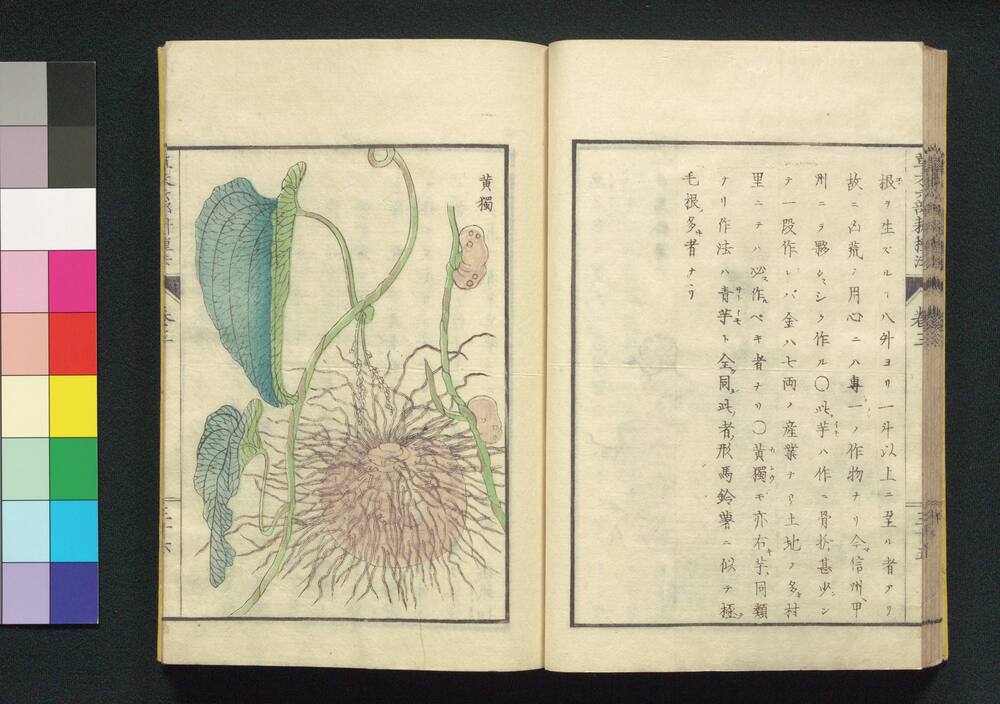 根ヲ生ズルヿ八外ヨリ一斗以上ニ至ル者アリ
故ニ凶荒ノ用心ニハ専一ノ作物ナリ今信州甲
州ニヲ夥シク作ル〇此芋ハ作ニ骨折甚少シ
テ一段作レバ金ハ七両ノ産業ナリ土地ノ多村
里ニテハ必作ベキ者ナリ〇黄獨モ亦右芋同類
ナリ作法ハ青芋ト全同此者形馬鈴薯ニ似テ極
毛根多者ナリ
黄獨